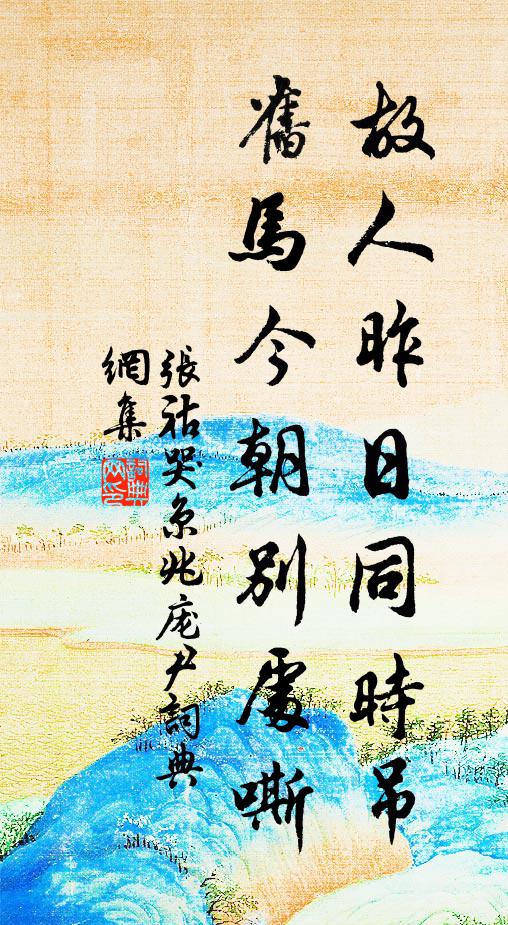 故人昨日同時吊
舊馬今朝別處嘶
張祜哭京兆龐尹詞典
網集
詞典
网印